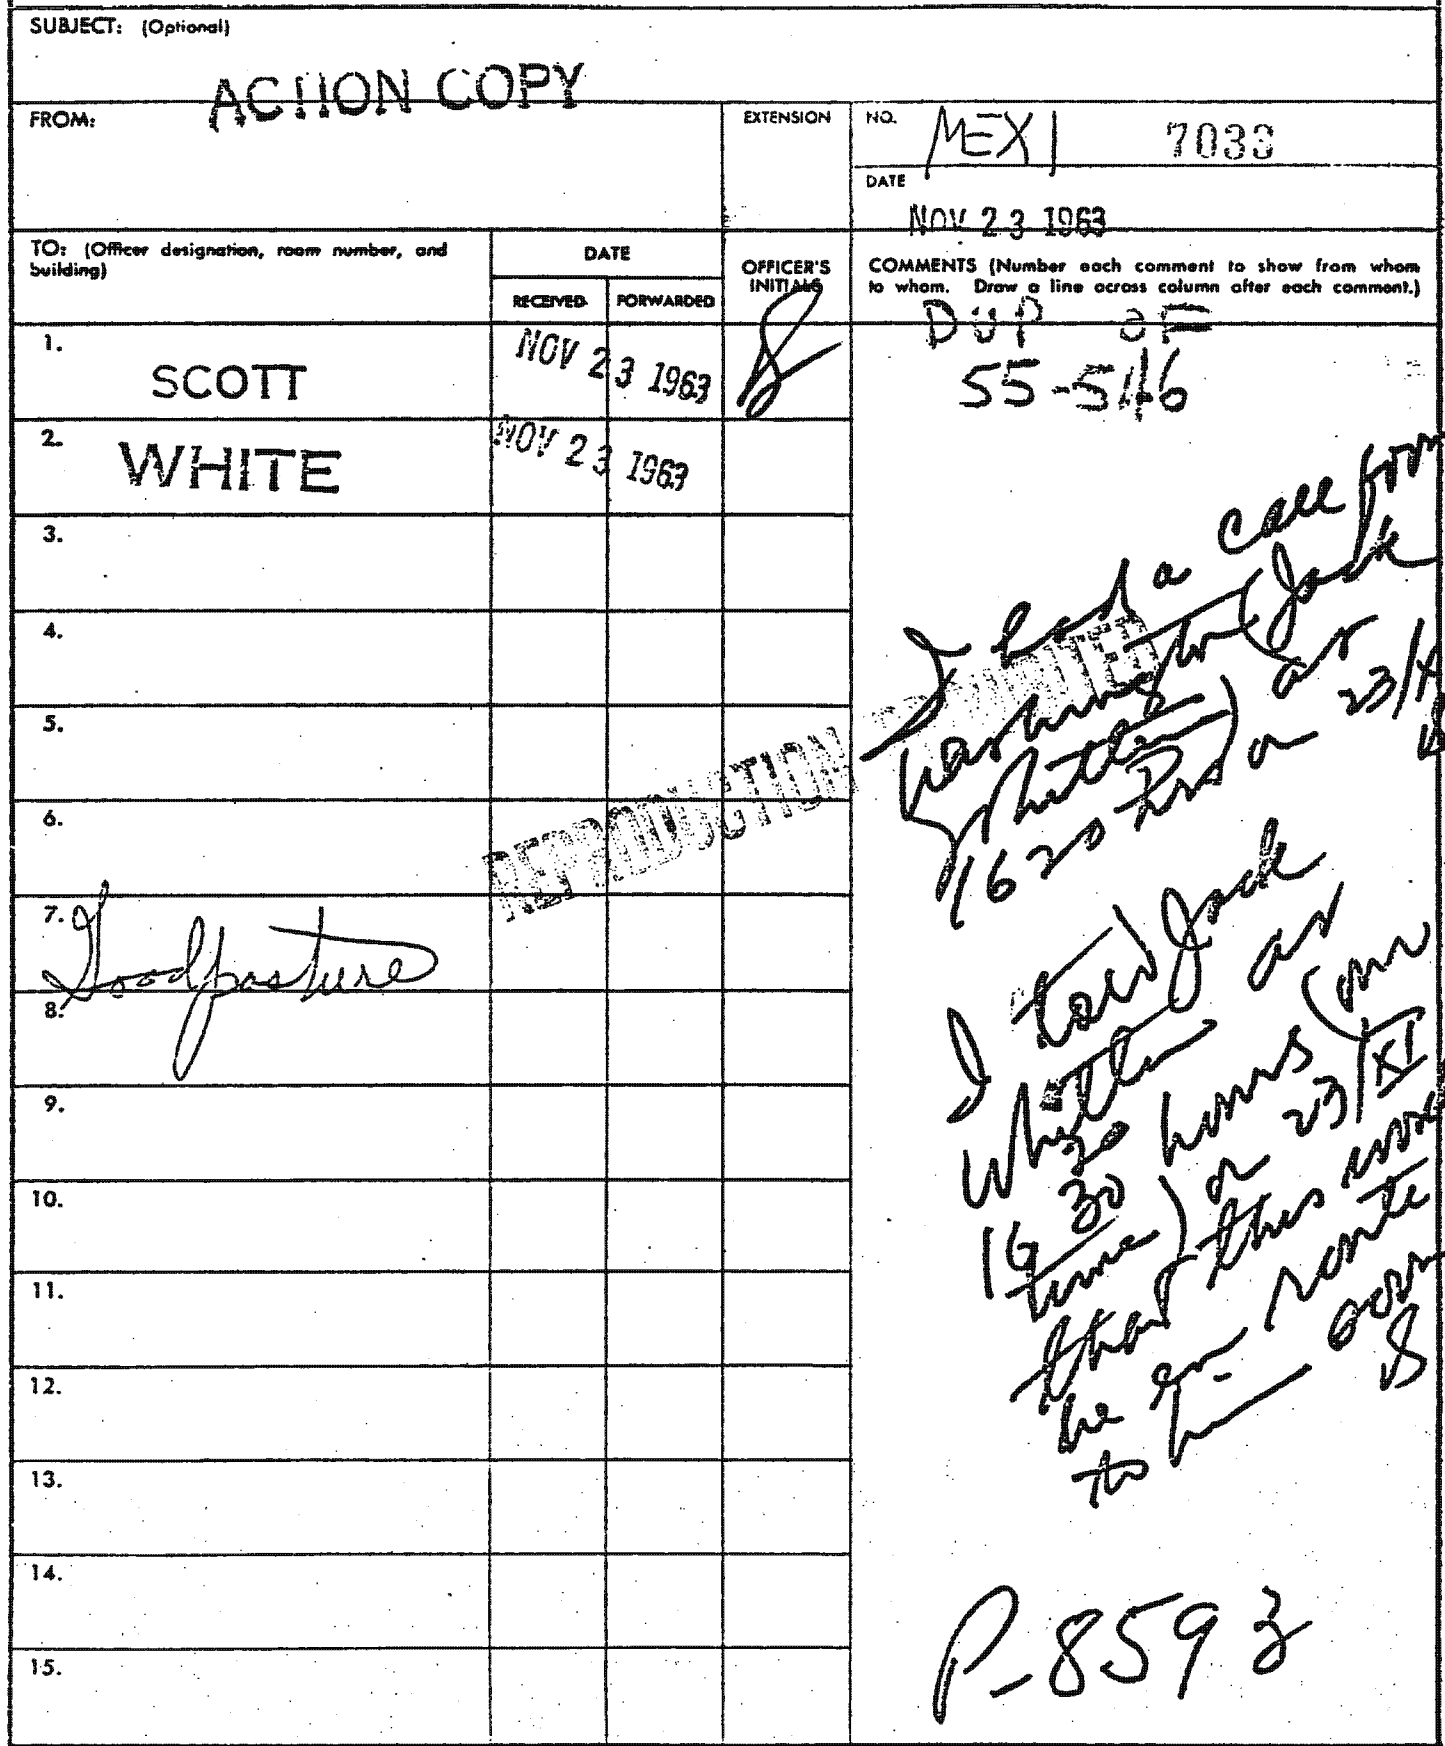 SUBJECT: (Optional)
ACTION COPY
FROM:
EXTENSION
NO.
MEXI 7033
DATE
NOV 23 1963
TO: (Officer designation, room number, and
building)
DATE
RECEIVED
FORWARDED
OFFICER'S
INITIALS
COMMENTS (Number each comment to show from whom
to whom. Draw a line across column after each comment.)
DUP OF
55-546
1.
SCOTT
NOV 23 1963
2.
WHITE
NOV 23 1963
3.
4.
5.
6.
7.
Goodpasture
8.
9.
10.
11.
12.
13.
14.
15.
REPRODUCTION PROHIBITED
I had a call from
Washington (Jack
Whitten) at
1620 hrs on 23/X
I told Jack
Whitten at
20
16 30 hours (our
time) on 23/XI
that this would
be en route
to him soon
P-8593